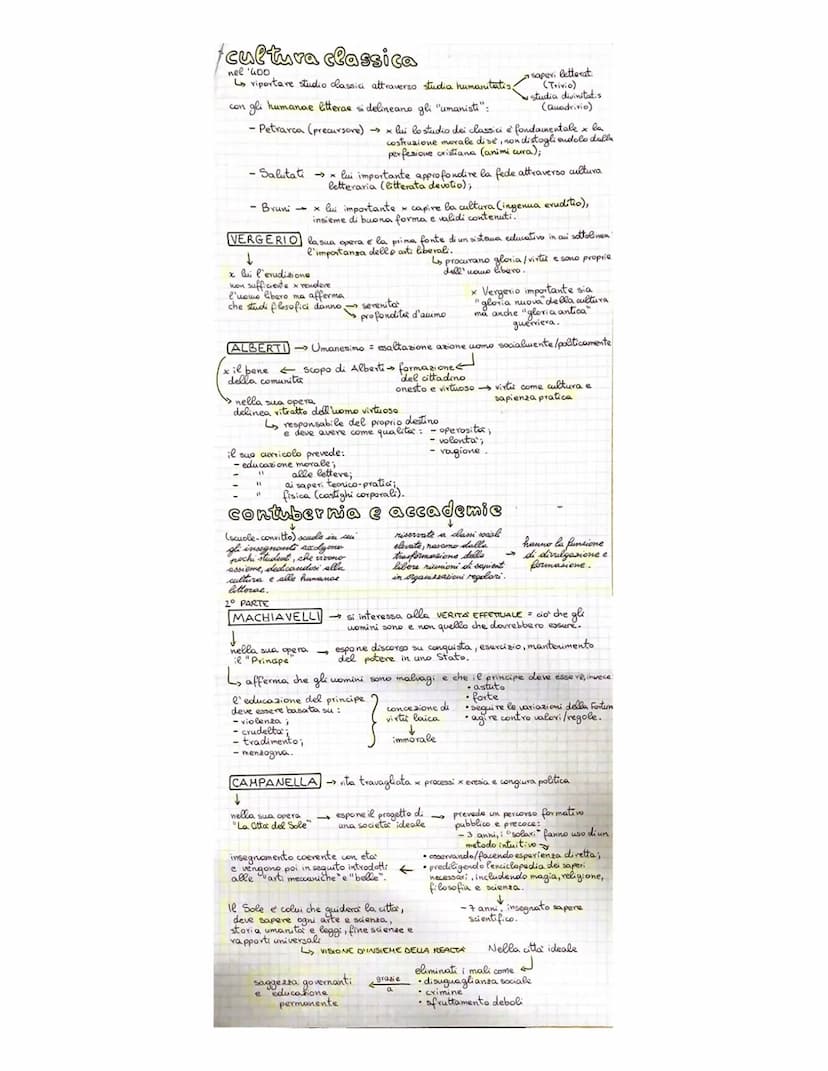 cultura classica
nel '400
↳ riportare studio classici attraverso studia humanitatis
saperi letterat.
(Trivio)
studia divinitatis
(Quadrivio)
con gli humanae litterae si delineano gli "umanisti":
- Petrarca (precursore) → x lui lo studio dei classici è fondamentale x la
costruzione morale di sé, non distogliendolo dalla
perfezione cristiana (animi cura);
- Salutati → x lui importante approfondire la fede attraverso cultura
letteraria (litterata devotio);
- Bruni → x lui importante x capire la cultura (ingenua eruditio),
insieme di buona forma e validi contenuti.
VERGERIO la sua opera è la prima fonte di un sistema educativo in cui sottolinea
l'importanza delle arti liberali.
↳ procurano gloria/virtù e sono proprie
dell'uomo libero.
x lui l'erudizione
non sufficiente x rendere
l'uomo libero ma afferma
che studi filosofici danno → serenità
→ profondità d'animo
x Vergerio importante sia
"gloria nuova" della cultura
ma anche "gloria antica"
guerriera.
ALBERTI → Umanesimo = esaltazione azione uomo socialmente/politicamente
x il bene ← scopo di Alberti → formazione
della comunità
del cittadino
onesto e virtuoso → virtù come cultura e
sapienza pratica
nella sua opera
delinea ritratto dell'uomo virtuoso
↳ responsabile del proprio destino
e deve avere come qualità: - operosità;
- volontà;
- ragione.
il suo curricolo prevede:
- educazione morale;
- " alle lettere;
- " ai saperi tecnico-pratici;
- " fisica (castighi corporali).
contubernia e accademie
(scuole-convitto) scuole in cui
gli insegnanti accolgono
pochi studenti, che vivono
assieme, dedicandosi alla
cultura e alle humanae
litterae.
riservate a classi sociali
elevate, nascono dalla
trasformazione delle
libere riunioni di sapienti
in organizzazioni regolari.
→ hanno la funzione
di divulgazione e
formazione.
2° PARTE
MACHIAVELLI → si interessa alla VERITÀ EFFETTUALE = ciò che gli
uomini sono e non quello che dovrebbero essere.
nella sua opera → espone discorso su conquista, esercizio, mantenimento
il "Principe" del potere in uno Stato.
↳ afferma che gli uomini sono malvagi e che il principe deve essere, invece
• astuto
• forte
• seguire le variazioni della Fortuna
• agire contro valori/regole.
l'educazione del principe
deve essere basata su:
- violenza;
- crudeltà;
- tradimento;
- menzogna.
concezione di
virtù laica
↓
immorale
CAMPANELLA → vita travagliata x processi x eresia e congiura politica
nella sua opera → espone il progetto di → prevede un percorso formativo
"La Città del Sole" una società ideale pubblico e precoce:
- 3 anni, i "solari" fanno uso di un
metodo intuitivo
• osservando/facendo esperienza diretta;
• prediligendo l'enciclopedia dei saperi
necessari, includendo magia, religione,
filosofia e scienza.
insegnamento coerente con età
e vengono poi in seguito introdotti
alle "arti meccaniche" e "belle".
- 7 anni, insegnato sapere
scientifico.
il Sole è colui che guiderà la città,
deve sapere ogni arte e scienza,
storia umanità e leggi, fine scienze e
rapporti universali
↳ VISIONE D'INSIEME DELLA REALTÀ
Nella città ideale
eliminati i mali come
• disuguaglianza sociale
• crimine
• sfruttamento deboli
grazie
a
saggezza governanti
e educazione
permanente